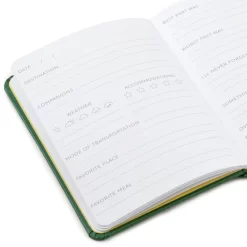 DATE
DESTINATION
COMPANIONS
WEATHER
ACCOMMODATIONS
MODE OF TRANSPORTATION
FAVORITE PLACE
FAVORITE MEAL
BEST PART WAS
WORST PART WAS
I'LL NEVER FORGET